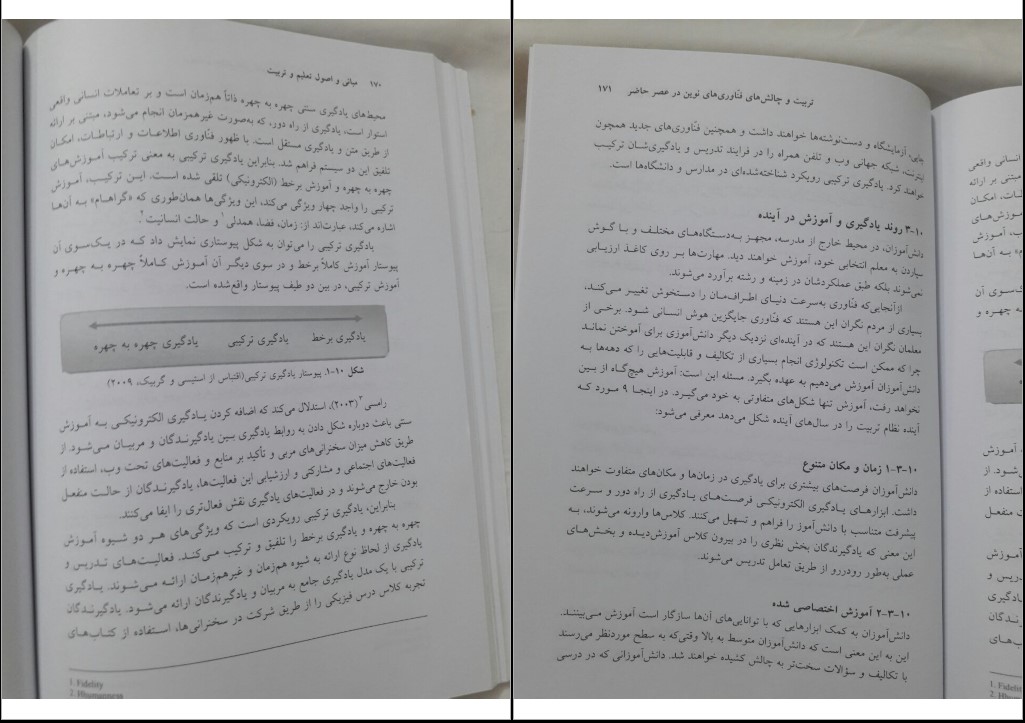 ۱۷۰ مبانی و اصول تعلیم و تربیت
محیط‌های یادگیری سنتی چهره به چهره ذاتاً هم‌زمان است و بر تعاملات انسانی واقعی
استوار است، یادگیری از راه دور، که به‌صورت غیرهمزمان انجام می‌شود، مبتنی بر ارائه
از طریق متن و یادگیری مستقل است. با ظهور فنّاوری اطلاعات و ارتباطات، امکان
تلفیق این دو سیستم فراهم شد. بنابراین یادگیری ترکیبی به معنی ترکیب آموزش‌های
چهره به چهره و آموزش برخط (الکترونیکی) تلقی شده است. این ترکیب، آموزش
ترکیبی را واجد چهار ویژگی می‌کند، این ویژگی‌ها همان‌طوری که «گراهام» به آن‌ها
اشاره می‌کند، عبارت‌اند از: زمان، فضا، همدلی۱ و حالت انسانیت۲.
یادگیری ترکیبی را می‌توان به شکل پیوستاری نمایش داد که در یک‌سوی آن
پیوستار آموزش کاملاً برخط و در سوی دیگر آن آموزش کاملاً چهره به چهره و
آموزش ترکیبی، در بین دو طیف پیوستار واقع‌شده است.
یادگیری برخط یادگیری ترکیبی یادگیری چهره به چهره
شکل ۱۰-۱. پیوستار یادگیری ترکیبی(اقتباس از استیسی و گربیک، ۲۰۰۹)
رامسی۳ (۲۰۰۳)، استدلال می‌کند که اضافه کردن یادگیری الکترونیکی به آموزش
سنتی باعث دوباره شکل دادن به روابط یادگیری بین یادگیرندگان و مربیان می‌شود. از
طریق کاهش میزان سخنرانی‌های مربی و تأکید بر منابع و فعالیت‌های تحت وب، استفاده از
فعالیت‌های اجتماعی و مشارکتی و ارزشیابی این فعالیت‌ها، یادگیرندگان از حالت منفعل
بودن خارج می‌شوند و در فعالیت‌های یادگیری نقش فعال‌تری را ایفا می‌کنند.
بنابراین، یادگیری ترکیبی رویکردی است که ویژگی‌های هر دو شیوه آموزش
چهره به چهره و یادگیری برخط را تلفیق و ترکیب می‌کند. فعالیت‌های تدریس و
یادگیری از لحاظ نوع ارائه به شیوه هم‌زمان و غیرهم‌زمان ارائه می‌شوند. یادگیری
ترکیبی با یک مدل یادگیری جامع به مربیان و یادگیرندگان ارائه می‌شود. یادگیرندگان
تجربه کلاس درس فیزیکی را از طریق شرکت در سخنرانی‌ها، استفاده از کتاب‌های
1. Fidelity
2. Hhumanness
تربیت و چالش‌های فنّاوری‌های نوین در عصر حاضر ۱۷۱
چاپی، آزمایشگاه و دست‌نوشته‌ها خواهند داشت و همچنین فنّاوری‌های جدید همچون
اینترنت، شبکه جهانی وب و تلفن همراه را در فرایند تدریس و یادگیری‌شان ترکیب
خواهند کرد. یادگیری ترکیبی رویکرد شناخته‌شده‌ای در مدارس و دانشگاه‌ها است.
۱۰-۳ روند یادگیری و آموزش در آینده
دانش‌آموزان، در محیط خارج از مدرسه، مجهز به‌دستگاه‌های مختلف و با گوش
سپاردن به معلم انتخابی خود، آموزش خواهند دید. مهارت‌ها بر روی کاغذ ارزیابی
نمی‌شوند بلکه طبق عملکردشان در زمینه و رشته برآورد می‌شوند.
ازآنجایی‌که فنّاوری به‌سرعت دنیای اطراف‌مان را دستخوش تغییر می‌کند،
بسیاری از مردم نگران این هستند که فناوری جایگزین هوش انسانی شود. برخی از
معلمان نگران این هستند که در آینده‌ای نزدیک دیگر دانش‌آموزی برای آموختن نماند
چرا که ممکن است تکنولوژی انجام بسیاری از تکالیف و قابلیت‌هایی را که دهه‌ها به
دانش‌آموزان آموزش می‌دهیم به عهده بگیرد. مسئله این است: آموزش هیچ‌گاه از بین
نخواهد رفت، آموزش تنها شکل‌های متفاوتی به خود می‌گیرد. در اینجا ۹ مورد که
آینده نظام تربیت را در سال‌های آینده شکل می‌دهد معرفی می‌شود:
۱۰-۳-۱ زمان و مکان متنوع
دانش‌آموزان فرصت‌های بیشتری برای یادگیری در زمان‌ها و مکان‌های متفاوت خواهند
داشت. ابزارهای یادگیری الکترونیکی فرصت‌های یادگیری از راه دور و سرعت
پیشرفت متناسب با دانش‌آموز را فراهم و تسهیل می‌کنند. کلاس‌ها وارونه می‌شوند، به
این معنی که یادگیرندگان بخش نظری را در بیرون کلاس آموزش‌دیده و بخش‌های
عملی به‌طور رودررو از طریق تعامل تدریس می‌شوند.
۱۰-۳-۲ آموزش اختصاصی شده
دانش‌آموزان به کمک ابزارهایی که با توانایی‌های آن‌ها سازگار است آموزش می‌بینند.
این به این معنی است که دانش‌آموزان متوسط به بالا وقتی‌که به سطح موردنظر می‌رسند
با تکالیف و سؤالات سخت‌تر به چالش کشیده خواهند شد. دانش‌آموزانی که در درسی